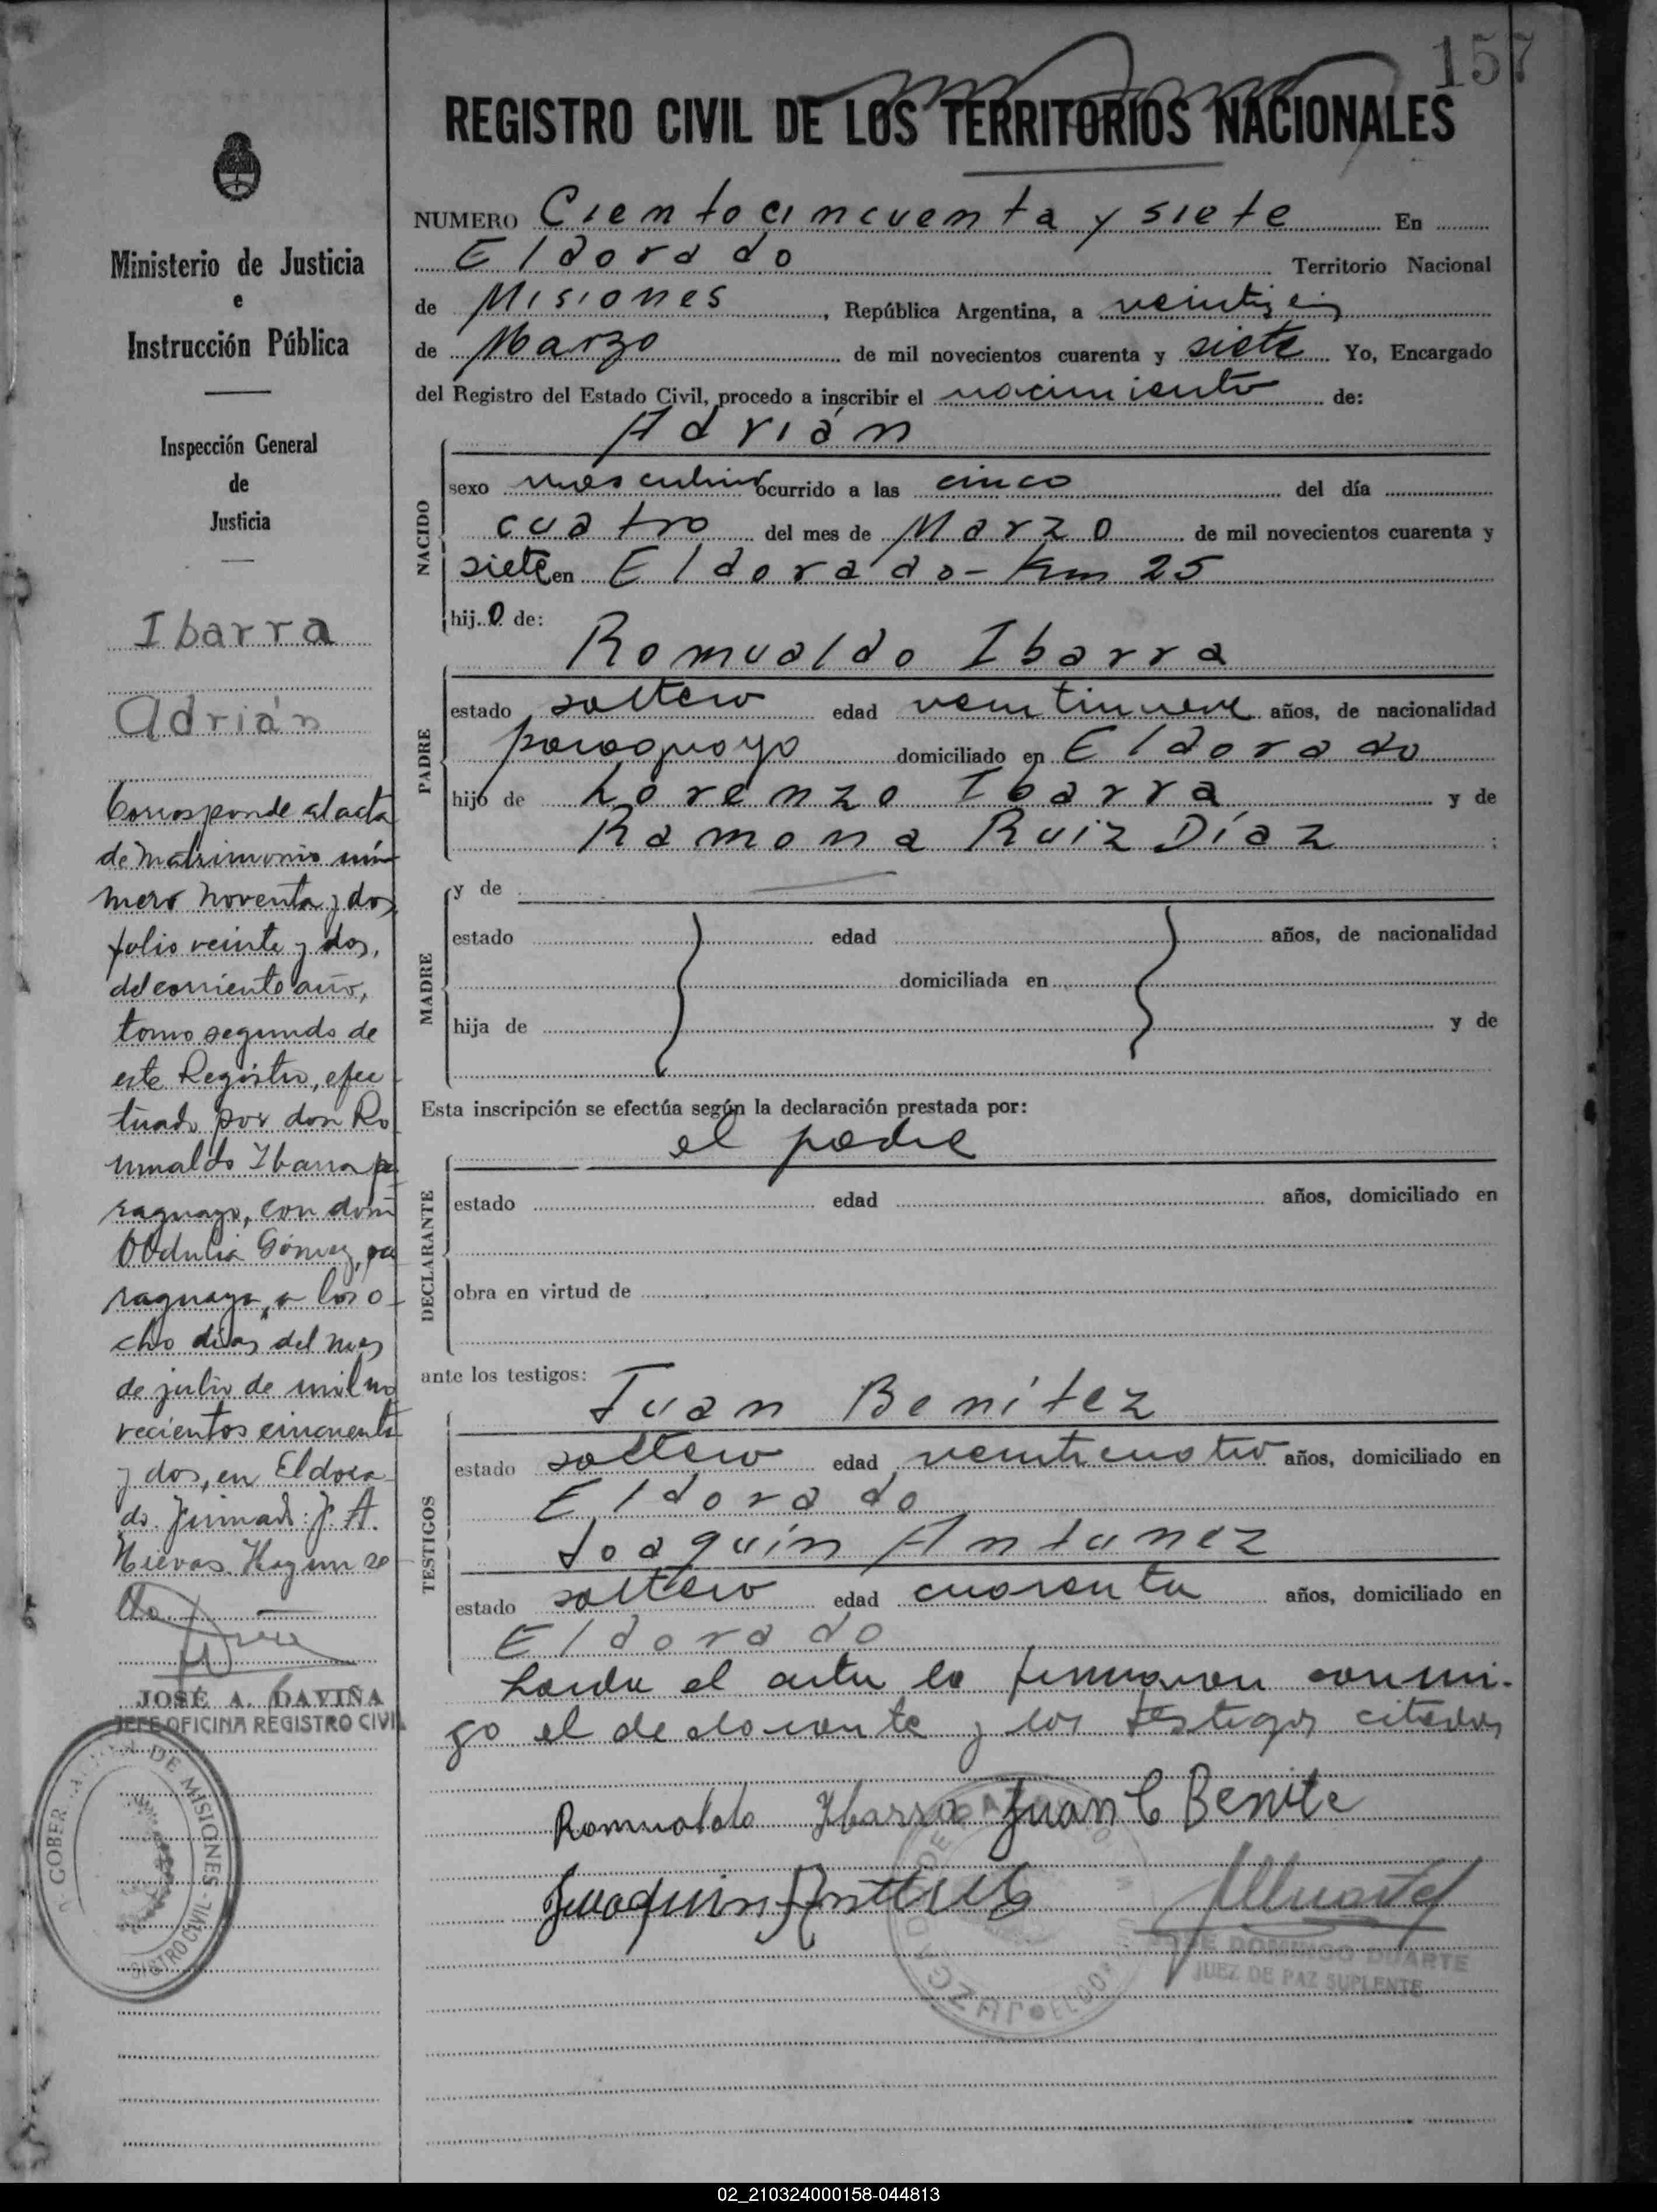 157
REGISTRO CIVIL DE LOS TERRITORIOS NACIONALES
Ministerio de Justicia
e
Instrucción Pública
Inspección General
de
Justicia
Ibarra
Adrián
Corresponde al acta
de matrimonio nú
mero noventa y dos,
folio veinte y dos,
del corriente año,
tomo segundo de
este Registro, efec
tuado por don Ro
mualdo Ibarra pa
raguayo, con doña
Obdulia Gómez, pa
raguaya, a los o-
cho días del mes
de julio de mil no
vecientos cincuenta
y dos, en Eldora
do. Firmado: J. A.
Hay un se
JOSÉ A. DAVIÑA
JEFE OFICINA REGISTRO CIVIL
DE MISIONES
NUMERO Cientocincuenta y siete En
Eldorado Territorio Nacional
de Misiones, República Argentina, a
de Marzo de mil novecientos cuarenta y siete Yo, Encargado
del Registro del Estado Civil, procedo a inscribir el nacimiento de:
Adrián
NACIDO
sexo masculino ocurrido a las cinco del día
cuatro del mes de Marzo de mil novecientos cuarenta y
siete en Eldorado - Km 25
hijo de:
Romualdo Ibarra
PADRE
estado soltero edad veintinueve años, de nacionalidad
paraguayo domiciliado en Eldorado
hijo de Lorenzo Ibarra y de
Ramona Ruiz Díaz ;
MADRE
y de
estado edad años, de nacionalidad
domiciliada en
hija de y de
Esta inscripción se efectúa según la declaración prestada por:
el padre
DECLARANTE
estado edad años, domiciliado en
obra en virtud de
ante los testigos:
Juan Benítez
TESTIGOS
estado soltero edad veinticuatro años, domiciliado en
Eldorado
Joaquín Antunez
estado soltero edad cuarenta años, domiciliado en
Eldorado
Leída el acta la firmaron conmi-
go el declarante y los testigos citados
Romualdo Ibarra Juan C Benite
JOSE DOMINGO DUARTE
JUEZ DE PAZ SUPLENTE
02_210324000158-044813